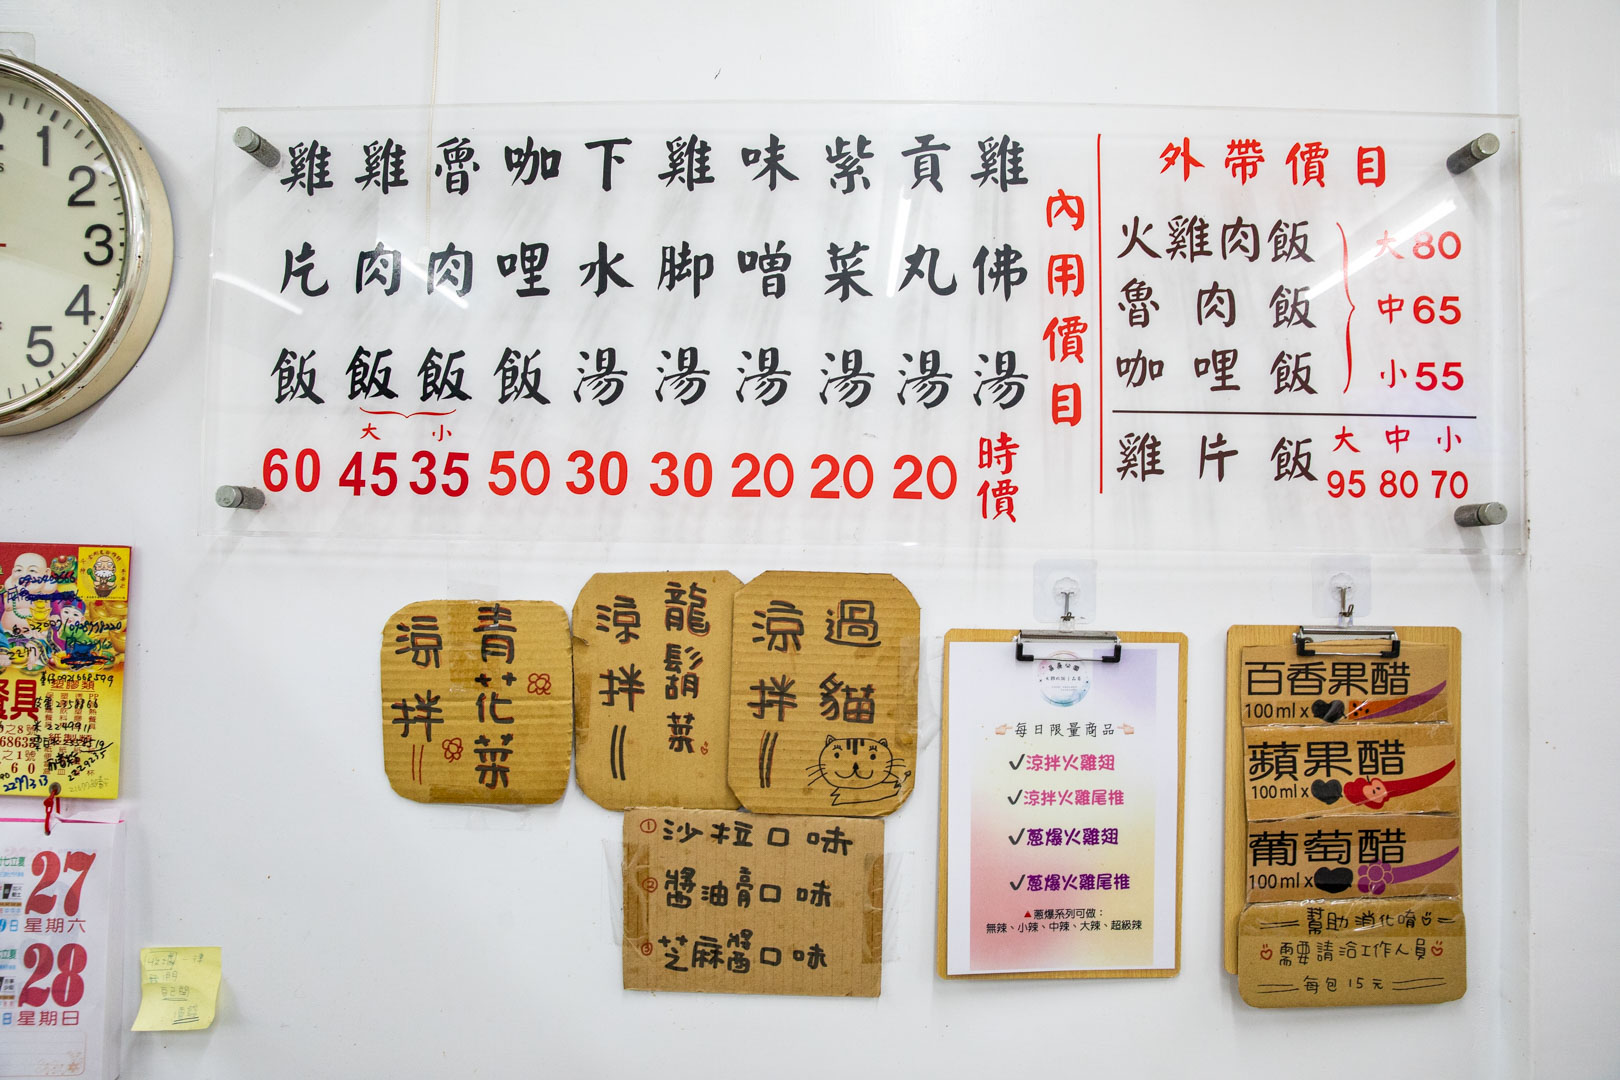 內用價目
雞佛湯 時價
貢丸湯 20
紫菜湯 20
味噌湯 20
雞脚湯 30
下水湯 30
咖哩飯 50
魯肉飯 小 35
雞肉飯 大 45
雞片飯 60
外帶價目
火雞肉飯
魯肉飯
咖哩飯
大80
中65
小55
雞片飯
大 中 小
95 80 70
青花菜
涼拌
龍鬚菜
涼拌
過貓
涼拌
①沙拉口味
②醬油膏口味
③芝麻醬口味
每日限量商品
✓涼拌火雞翅
✓涼拌火雞尾椎
✓蔥爆火雞翅
✓蔥爆火雞尾椎
▲蔥爆系列可做：
無辣、小辣、中辣、大辣、超級辣
百香果醋
100ml x
蘋果醋
100ml x
葡萄醋
100ml x
幫助消化唷
需要請洽工作人員
每包15元
1
2
3
4
5
27
星期六
28
星期日